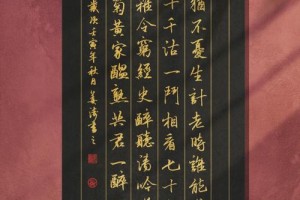 猶不憂生計老時誰能
十千沽一鬥相看七十
雅令窮經史醉聽清吟
菊黃家醞熟共君一醉
歲次壬寅年秋月姜濤書之